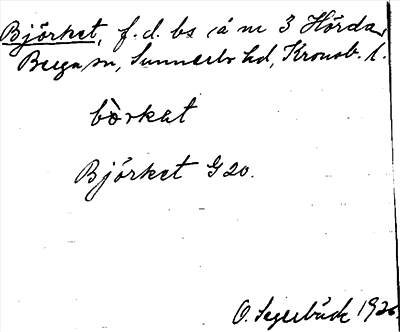 Björket, f. d. bs å nr 3 Hörda,
Berga sn, Sunnerbo hd, Kronob. l.
bö̀rkat
Björket G 20.
O. Segerbäck 1926.